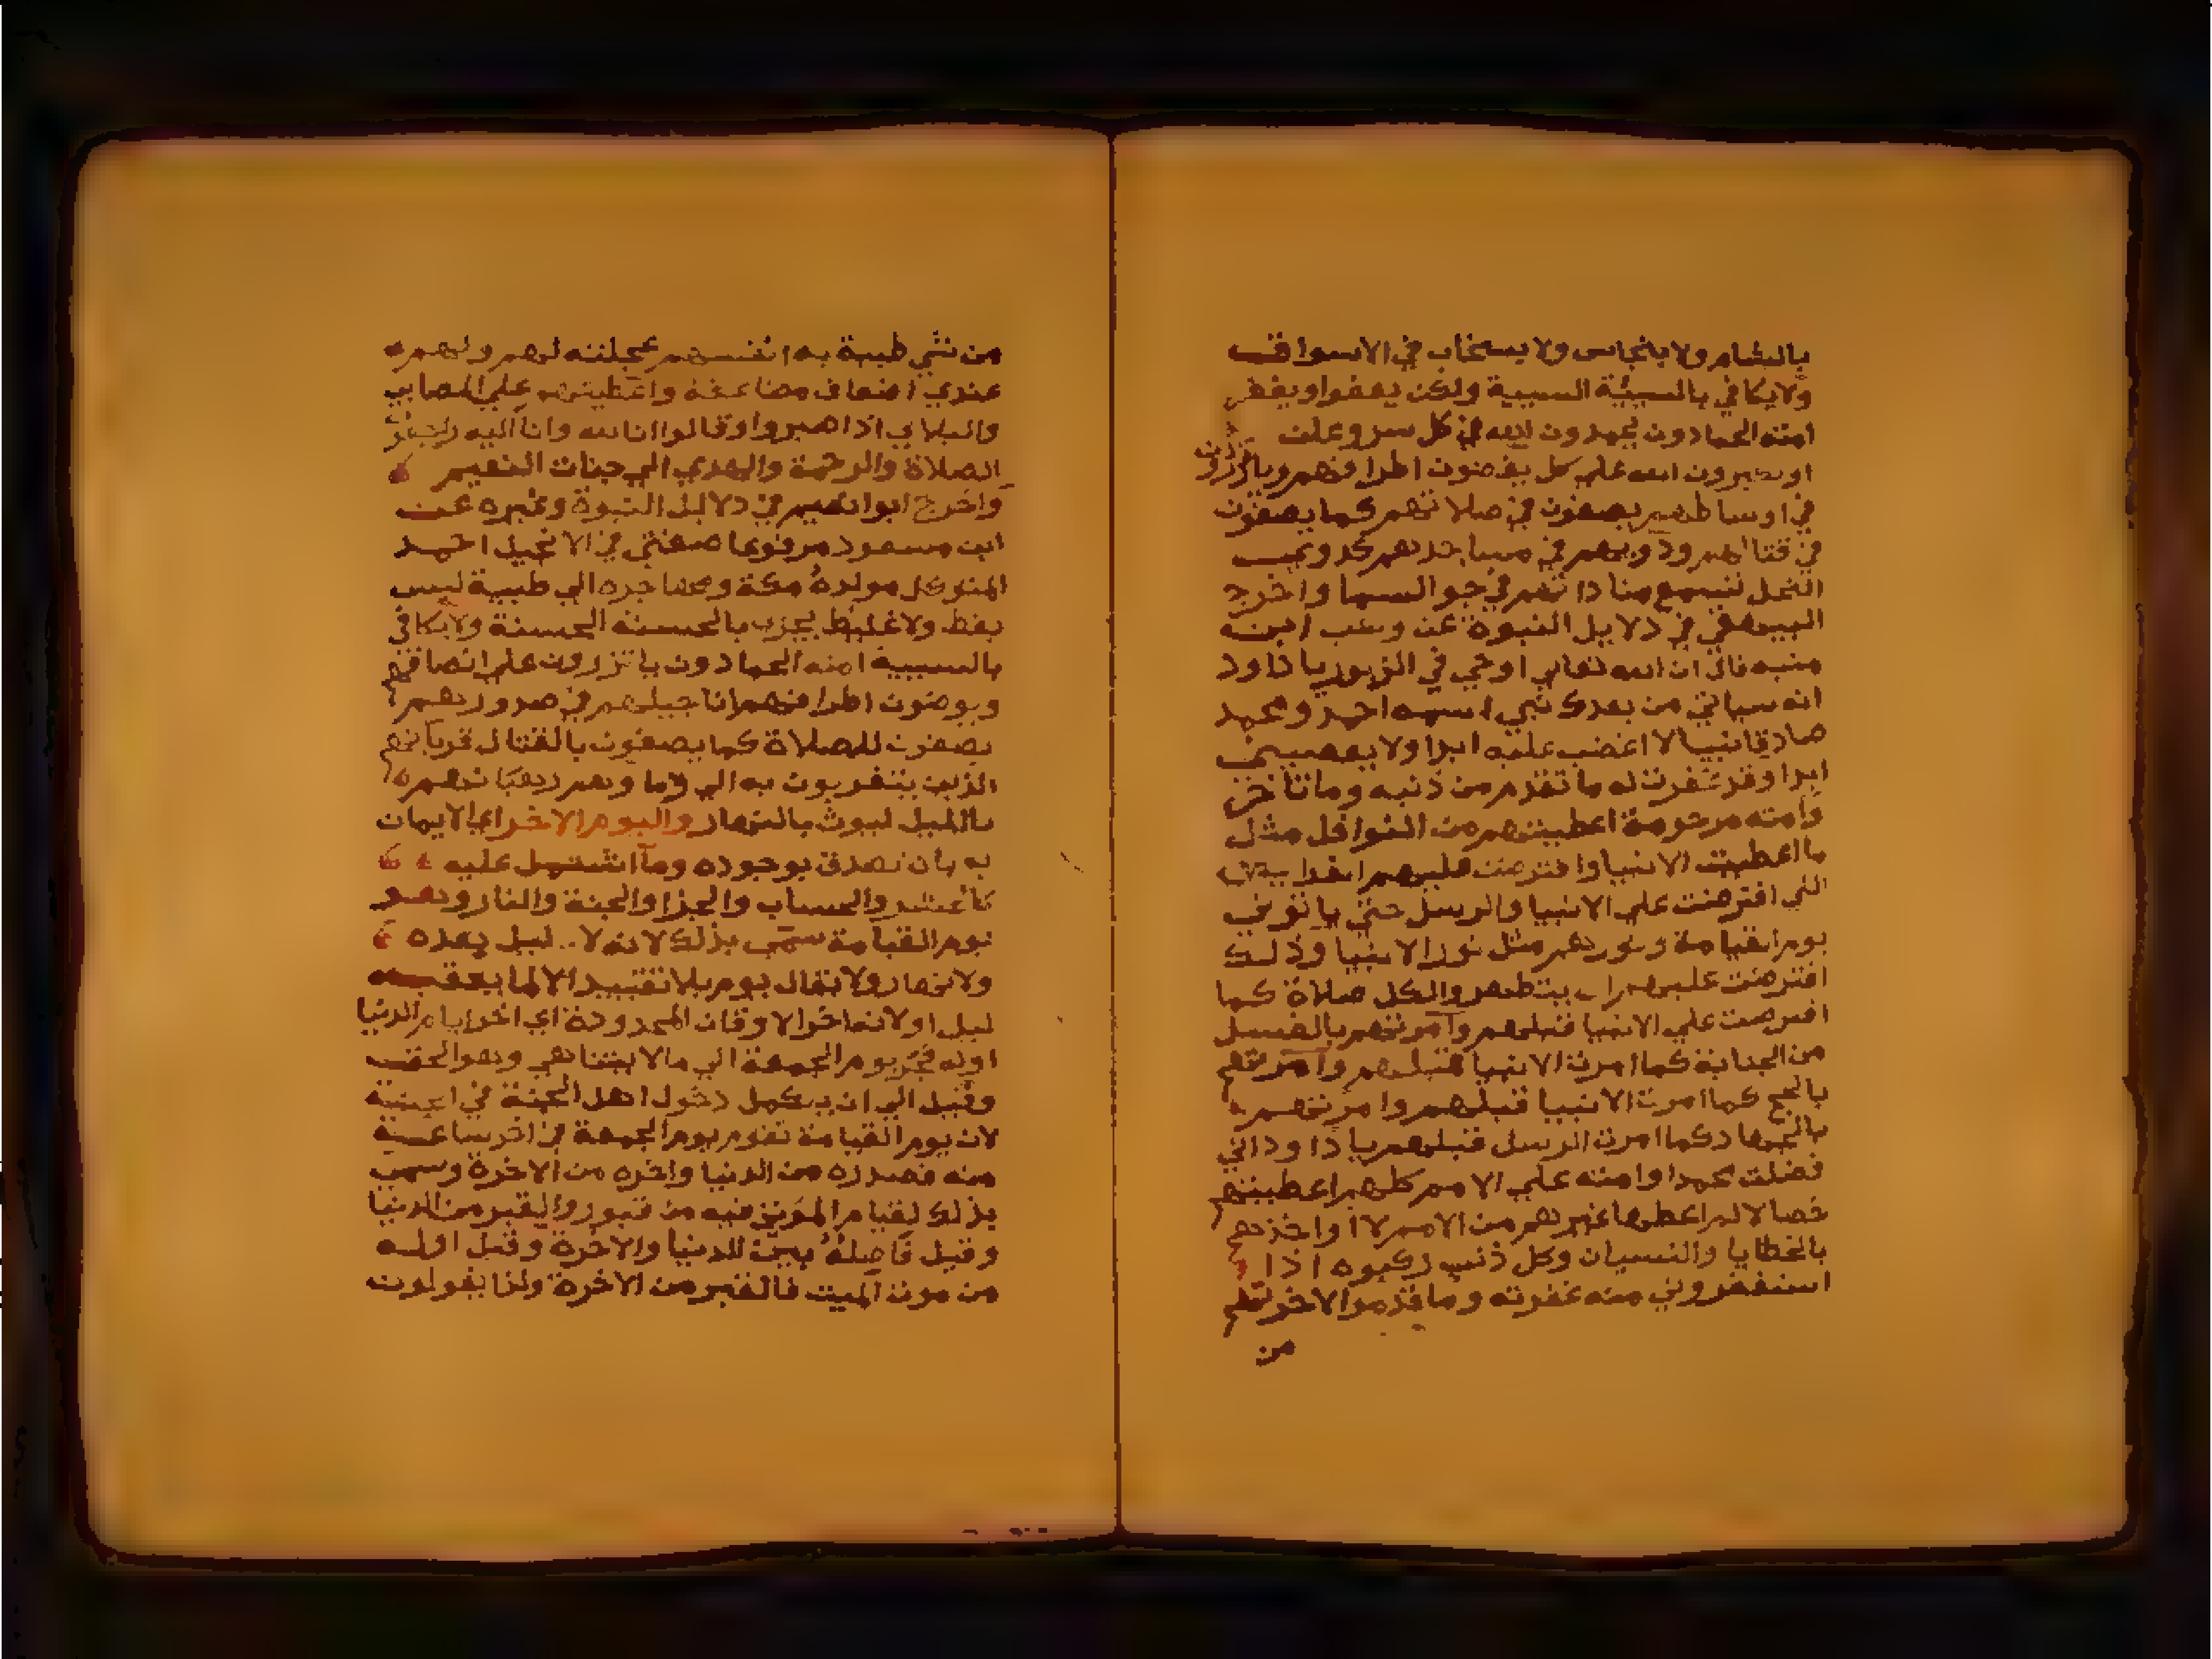 بالشام ولا بفحاش ولا بسخاب في الاسواق
ولا يكافي بالسيئة السيية ولكن يعفوا ويغفر
امته الحمادون يحمدون الله في كل سر وعلن
او يكبرون الله علي كل يفضون اطرافهم وياتزرون
في اوساطهم يصفون في صلاتهم كما يصفون
في قتالهم ودويهم في مساجدهم كدوي
النحل تسمع مناداتهم في جو السما واخرج
البيهقي في دلايل النبوة عن وهب ابن
منبه قال ان الله تعالي اوحي في الزبور يا داود
انه سياتي من بعدك نبي اسمه احمد ومحمد
صادقا نبيا لا اغضب عليه ابدا ولا يعصيني
ابدا وقد غفرت له ما تقدم من ذنبه وما تاخر
وامته مرحومة اعطيتهم من النوافل مثل
ما اعطيت الانبيا وافترضت عليهم الفرايض
التي افترضت علي الانبيا والرسل حتي ياتوني
يوم القيامة ونورهم مثل نور الانبيا وذلك
افترضت عليهم ان يتطهروا لكل صلاة كما
افترضت علي الانبيا قبلهم وامرتهم بالغسل
من الجنابة كما امرت الانبيا قبلهم وامرتهم
بالحج كما امرت الانبيا قبلهم وامرتهم
بالجهاد كما امرت الرسل قبلهم يا داود اني
فضلت محمدا وامته علي الامم كلهم اعطيتهم
خصالا لم اعطها غيرهم من الامم لا اواخذهم
بالخطايا والنسيان وكل ذنب ركبوه اذا
استغفروني منه غفرته وما قدموا لاخرتهم
من
من شي طيبة به انفسهم عجلته لهم ولهم
عندي اضعاف مضاعفة واعطيتهم علي المصايب
والبلايا اذا صبروا وقالوا انا لله وانا اليه راجعون
الصلاة والرحمة والهدي الي جنات النعيم
واخرج ابوا نعيم في دلايل النبوة وغيره عن
ابن مسعود مرفوعا صفتي في الانجيل احمد
المتوكل مولده مكة ومهاجره الي طيبة ليس
بفظ ولا غليظ يجزي بالحسنة الحسنة ولا يكافي
بالسيية امته الحمادون ياتزرون علي انصافهم
ويوضون اطرافهم اناجيلهم في صدورهم
يصفون للصلاة كما يصفون بالقتال قربانهم
الذين يتقربون به الي دماوهم رهبانهم
بالليل ليوث بالنهار واليوم الاخر اي الايمان
به بان نصدق بوجوده وما اشتمل عليه
كالحشر والحساب والجزا والجنة والنار وهو
يوم القيامة سمي بذلك لانه لا ليل بعده
ولا نهار ولا يقال يوم بلا تقييد الا لما يعقبه
ليل او لانه اخر الاوقات المحدودة اي اخر ايام الدنيا
اوله فجر يوم الجمعة الي ما لا يتناهي وهو الحق
وقيل الي ان يكمل دخول اهل الجنة في الجنة
لان يوم القيامة تقوم يوم الجمعة في اخر ساعة
منه فصدره من الدنيا واخره من الاخرة وسمي
بذلك لقيام الموتي فيه من قبور والقبر من الدنيا
وقيل فاصلة بين الدنيا والاخرة وقيل اوله
من موت الميت فالقبر من الاخرة ولذا يقولون